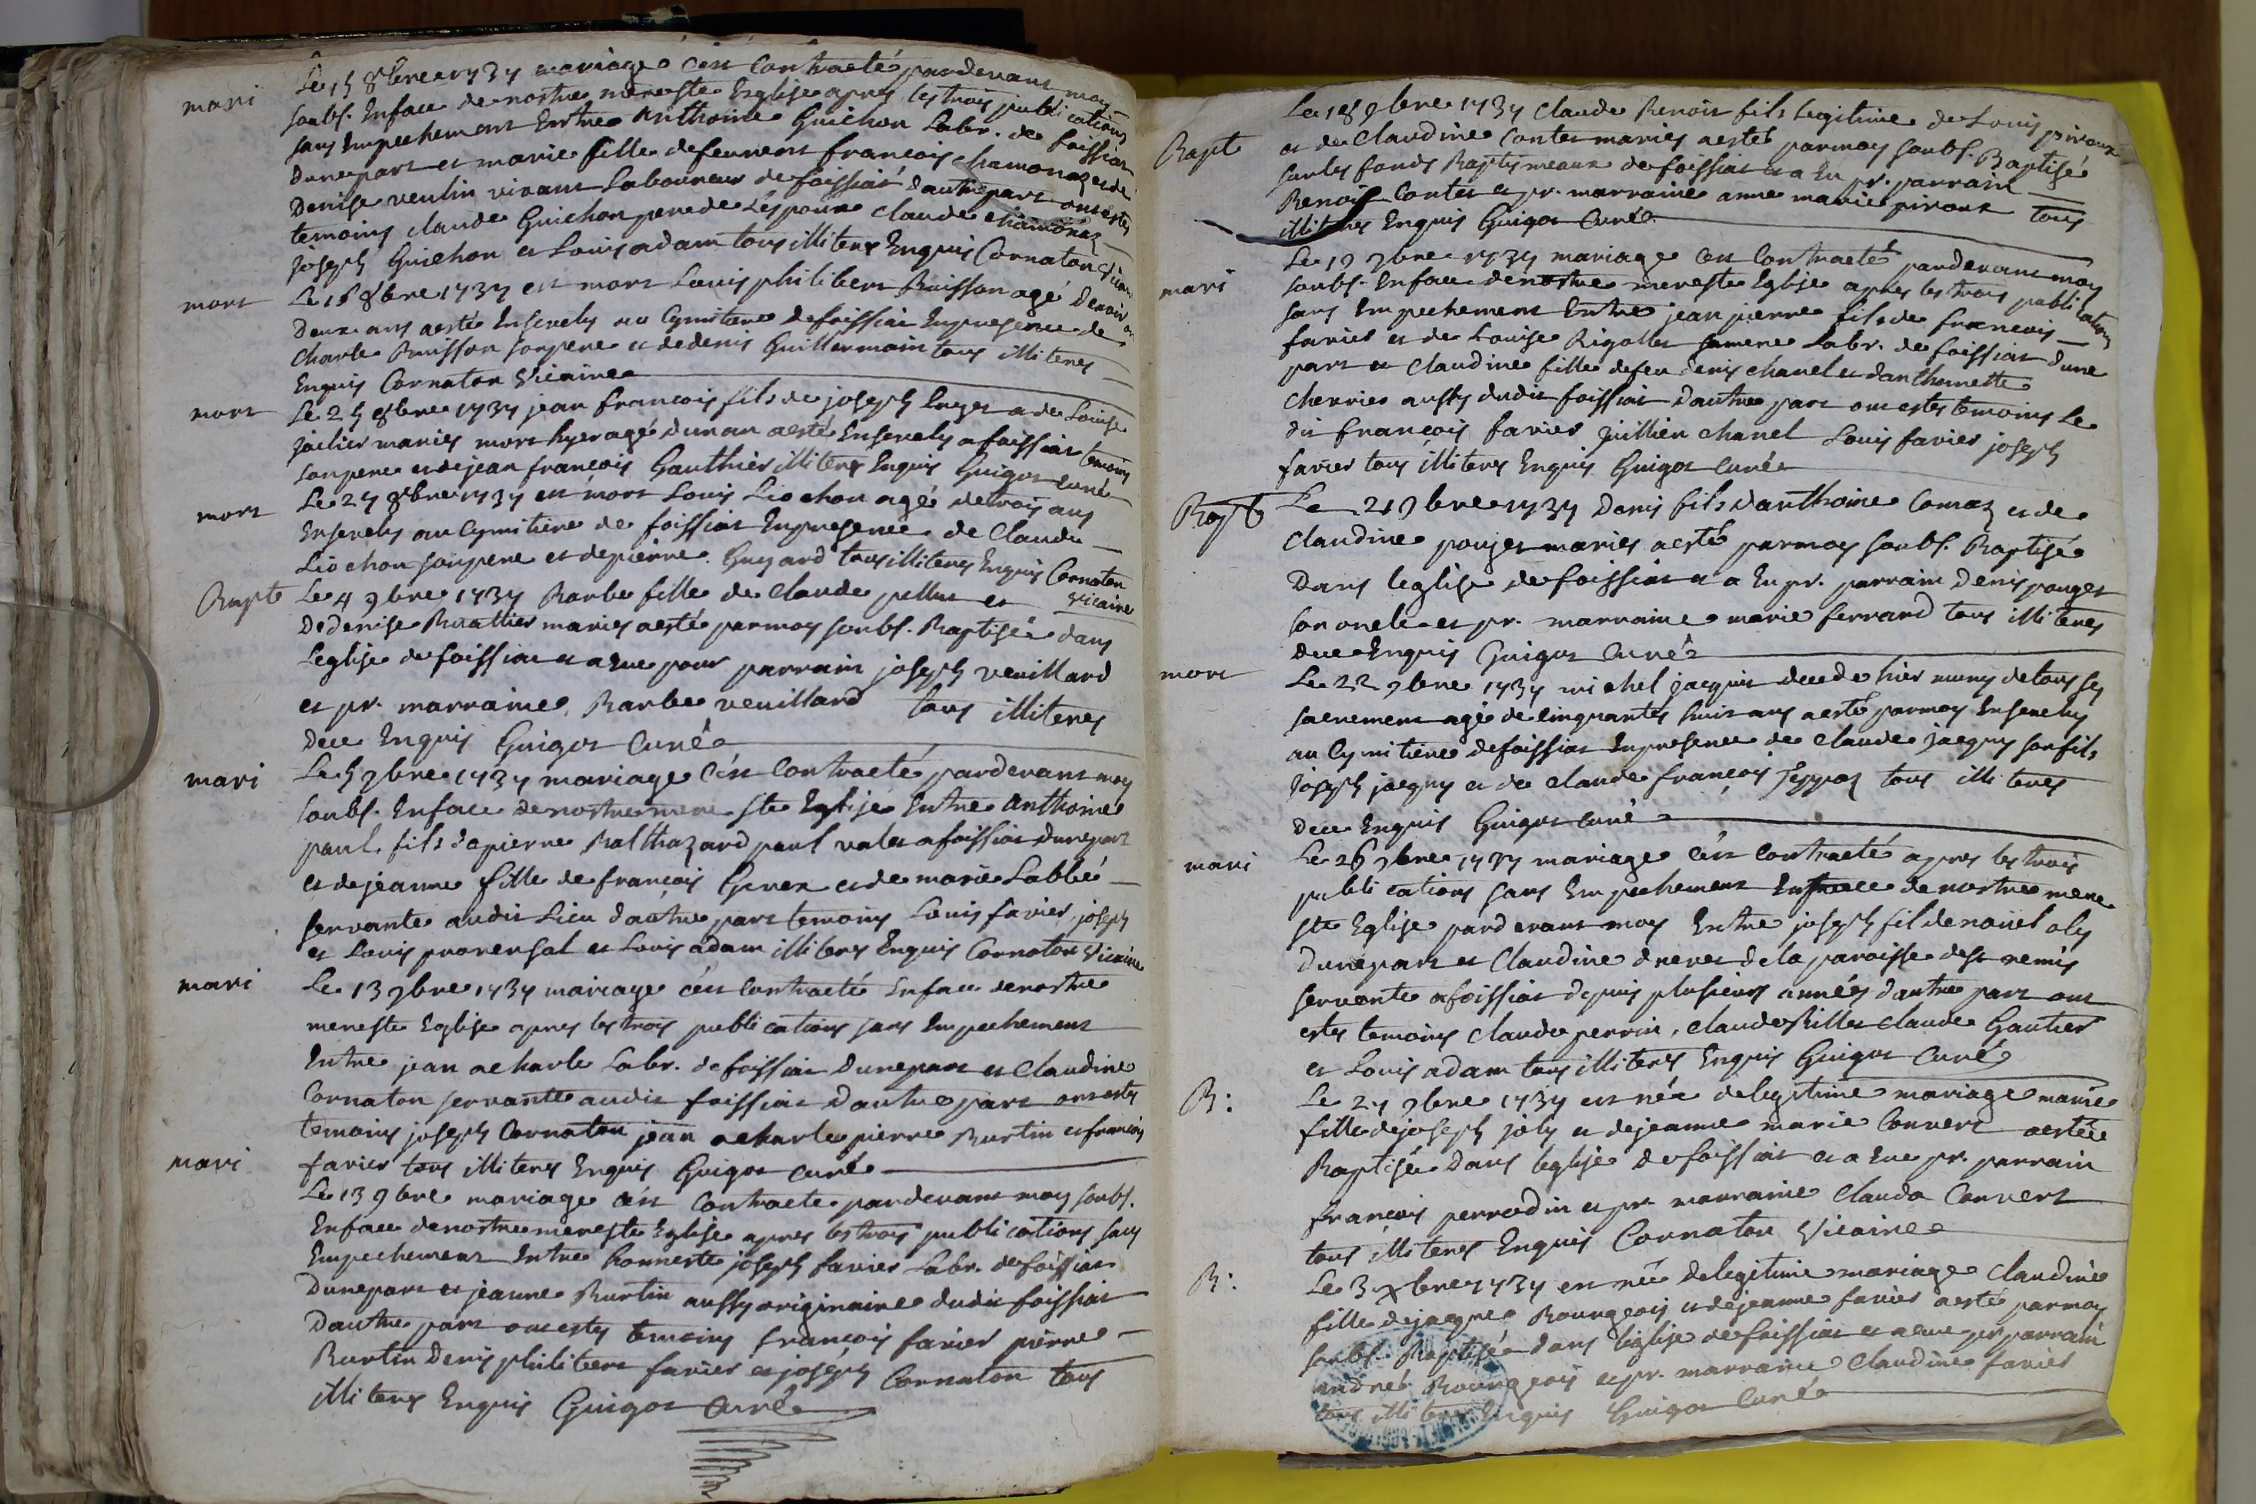 mari
Le 15 8bre 1737 mariage c'est Contracté pardevant moy
soubs. Enface de nostre mere ste Esglise apres les trois publications
sans Empechement Entre Anthoine Guichon Labr. de foissiat
Dune part et marie fille defeu francois chamonaz et de
Denise veulin vivant Laboureur de foissiat dautre part ont estes
temoins claude Guichon pere de Lespoux claude chamonaz
joseph Guichon et Louis adam tous illiteres Enquis Cornaton vicaire
mort
Le 16 8bre 1737 est mort Louis philibert Buisson agé Denviron
Deux ans aesté Enseuely au Cymitiere de foissiat Enpresence de
charle Buisson son pere et de denis Guillermain tous illiteres
Enquis Cornaton vicaire
mort
Le 25 8bre 1737 jean francois fils de joseph Puget et de Louise
maries mort hyer agé dun an aesté Enseuely a foissiat temoins
son pere et de jean francois Gauthier illiteres Enquis Guigot curé
mort
Le 27 8bre 1737 est mort Louis Liochon agé de trois ans
Enseuely au Cymitiere de foissiat Enpresence de Claude
Liochon son pere et de pierre Guyard tous illiteres Enquis Cornaton
vicaire
Bapte
Le 4 9bre 1737 Barbe fille de Claude pellus et
De denise Buathier maries aesté parmoy soubs. Baptisée dans
Leglise de foissiat et a eue pour parrain joseph veuillard
et pr. marraine Barbe veuillard tous illiteres
dece Enquis Guigot Curé
mari
Le 5 9bre 1737 mariage c'est Contracté pardevant moy
soubs. Enface denostre mere ste Eglise Entre Anthoine
paul fils a pierre Balthazard paul valet a foissiat dunepart
et de jeanne fille de francois Gerex et de marie Labbé
servante audit Lieu dautre part temoins Louis favier joseph
et Louis provensal et Louis adam illiteres Enquis Cornaton vicaire
mari
Le 13 9bre 1737 mariage c'est Contracté Enface denostre
mere ste Eglise apres les trois publications sans Empechement
Entre jean acharle Labr. de foissiat dunepart et Claudine
Cornaton servante audit foissiat Dautre part ont estes
temoins joseph Cornaton jean acharle pierre Burtin et francois
favier tous illiteres Enquis Guigot curé
mari
Le 13 9bre mariage c'est Contracté pardevant moy soubs.
Enface denostre mere ste Eglise apres les trois publications sans
Empechement Entre honneste joseph favier Labr. de foissiat
Dunepart et jeanne Burtin aussy originaire dudit foissiat
Dautre part ont estes temoins francois favier pierre
Burtin Denis philibert favier et joseph Cornaton tous
illiteres Enquis Guigot Curé
Bapt
Le 18 9bre 1737 Claude Benoit fils Legitime de Louis piroux
et de Claudine Contet maries aesté parmoy soubs. Baptisé
sur les fonds Baptismeaux de foissiat et a Eu pr. parrain
Benoit Contet et pr. marraine anne marie piroux tous
illiteres Enquis Guigot Curé
mari
Le 19 9bre 1737 mariage c'est Contracté pardevant moy
soubs. Enface denostre mere ste Eglise apres les trois publications
sans Empechement Entre jean pierre fils de francois
favier et de Louise Rigollet sa mere Labr. de foissiat d'une
part et Claudine fille defeu denis chanel et danthoinette
cherrier aussy dudit foissiat Dautre part ont estes temoins Le
dit francois favier Jullien chanel Louis favier joseph
favier tous illiteres Enquis Guigot curé
Bapt
Le 21 9bre 1737 Denis fils danthoine Comaz et de
Claudine pouget maries aesté parmoy soubs. Baptisé
Dans leglise de foissiat et a Eu pr. parrain Denis pouget
son oncle et pr. marraine marie ferrand tous illiteres
dece Enquis Guigot Curé
mort
Le 22 9bre 1737 michel jacquit decede hier muny de tous ses
sacrement agé de cinquantes huit ans aesté parmoy Enseuely
au Cymitiere de foissiat Enpresence de claude jacquy son fils
joseph jacquy et de claude francois tous illiteres
dece Enquis Guigot Curé
mari
Le 26 9bre 1737 mariage c'est Contracté apres les trois
publications sans Empechement Enface de nostre mere
ste Eglise pardevant moy Entre joseph fil de noüel oly
Dunepart et Claudine dreret de la paroisse de st remis
servante a foissiat depuis plusieurs années dautre part ont
estes temoins claude perrin, claude Billet claude Gautier
et Louis adam tous illiteres Enquis Guigot Curé
B:
Le 27 9bre 1737 est née de legitime mariage marie
fille de joseph joly et de jeanne marie Convert aestée
Baptisée Dans leglise de foissiat et a Eue pr. parrain
francois perrodin et pr. marraine Clauda Convert
tous illiteres Enquis Cornaton vicaire
B:
Le 3 xbre 1737 est née de legitime mariage Claudine
fille de jacque Bourgeois et de jeanne favier aesté parmoy
soubs. Baptisée dans leglise de foissiat et a eue pr. parrain
andré Bourgeois et pr. marraine Claudine favier
tous illiteres Enquis Guigot Curé